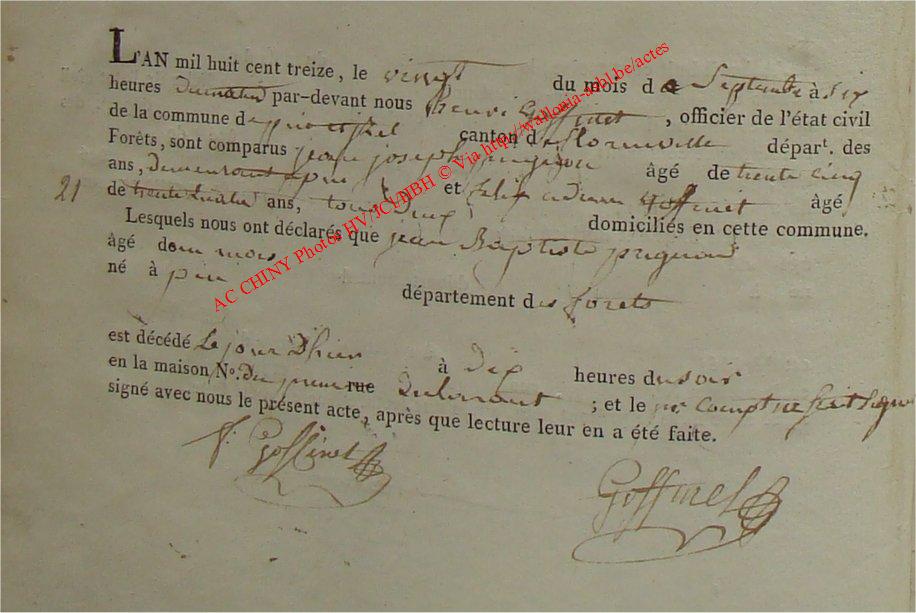 L'AN mil huit cent treize, le vingt du mois de Septembre à six
heures du matin par-devant nous henri Goffinet, officier de l'état civil
de la commune d canton de florenville départ. des
Forêts, sont comparus jean joseph prignon âgé de trente cinq
ans, demeurant a pin et felix adrien Goffinet âgé
21
de trente quatre ans, tous deux domiciliés en cette commune.
Lesquels nous ont déclarés que jean Baptiste prignon
âgé de mois
né à pin département des forets
est décédé Le jour Dhier à Dix heures du soir
en la maison N°. rue ; et le 1er Compt ne scait signer
signé avec nous le présent acte, après que lecture leur en a été faite.
f: Goffinet
Goffinet
AC CHINY Photos HV/JCL/NBH © Via http://wallonia-asbl.be/actes